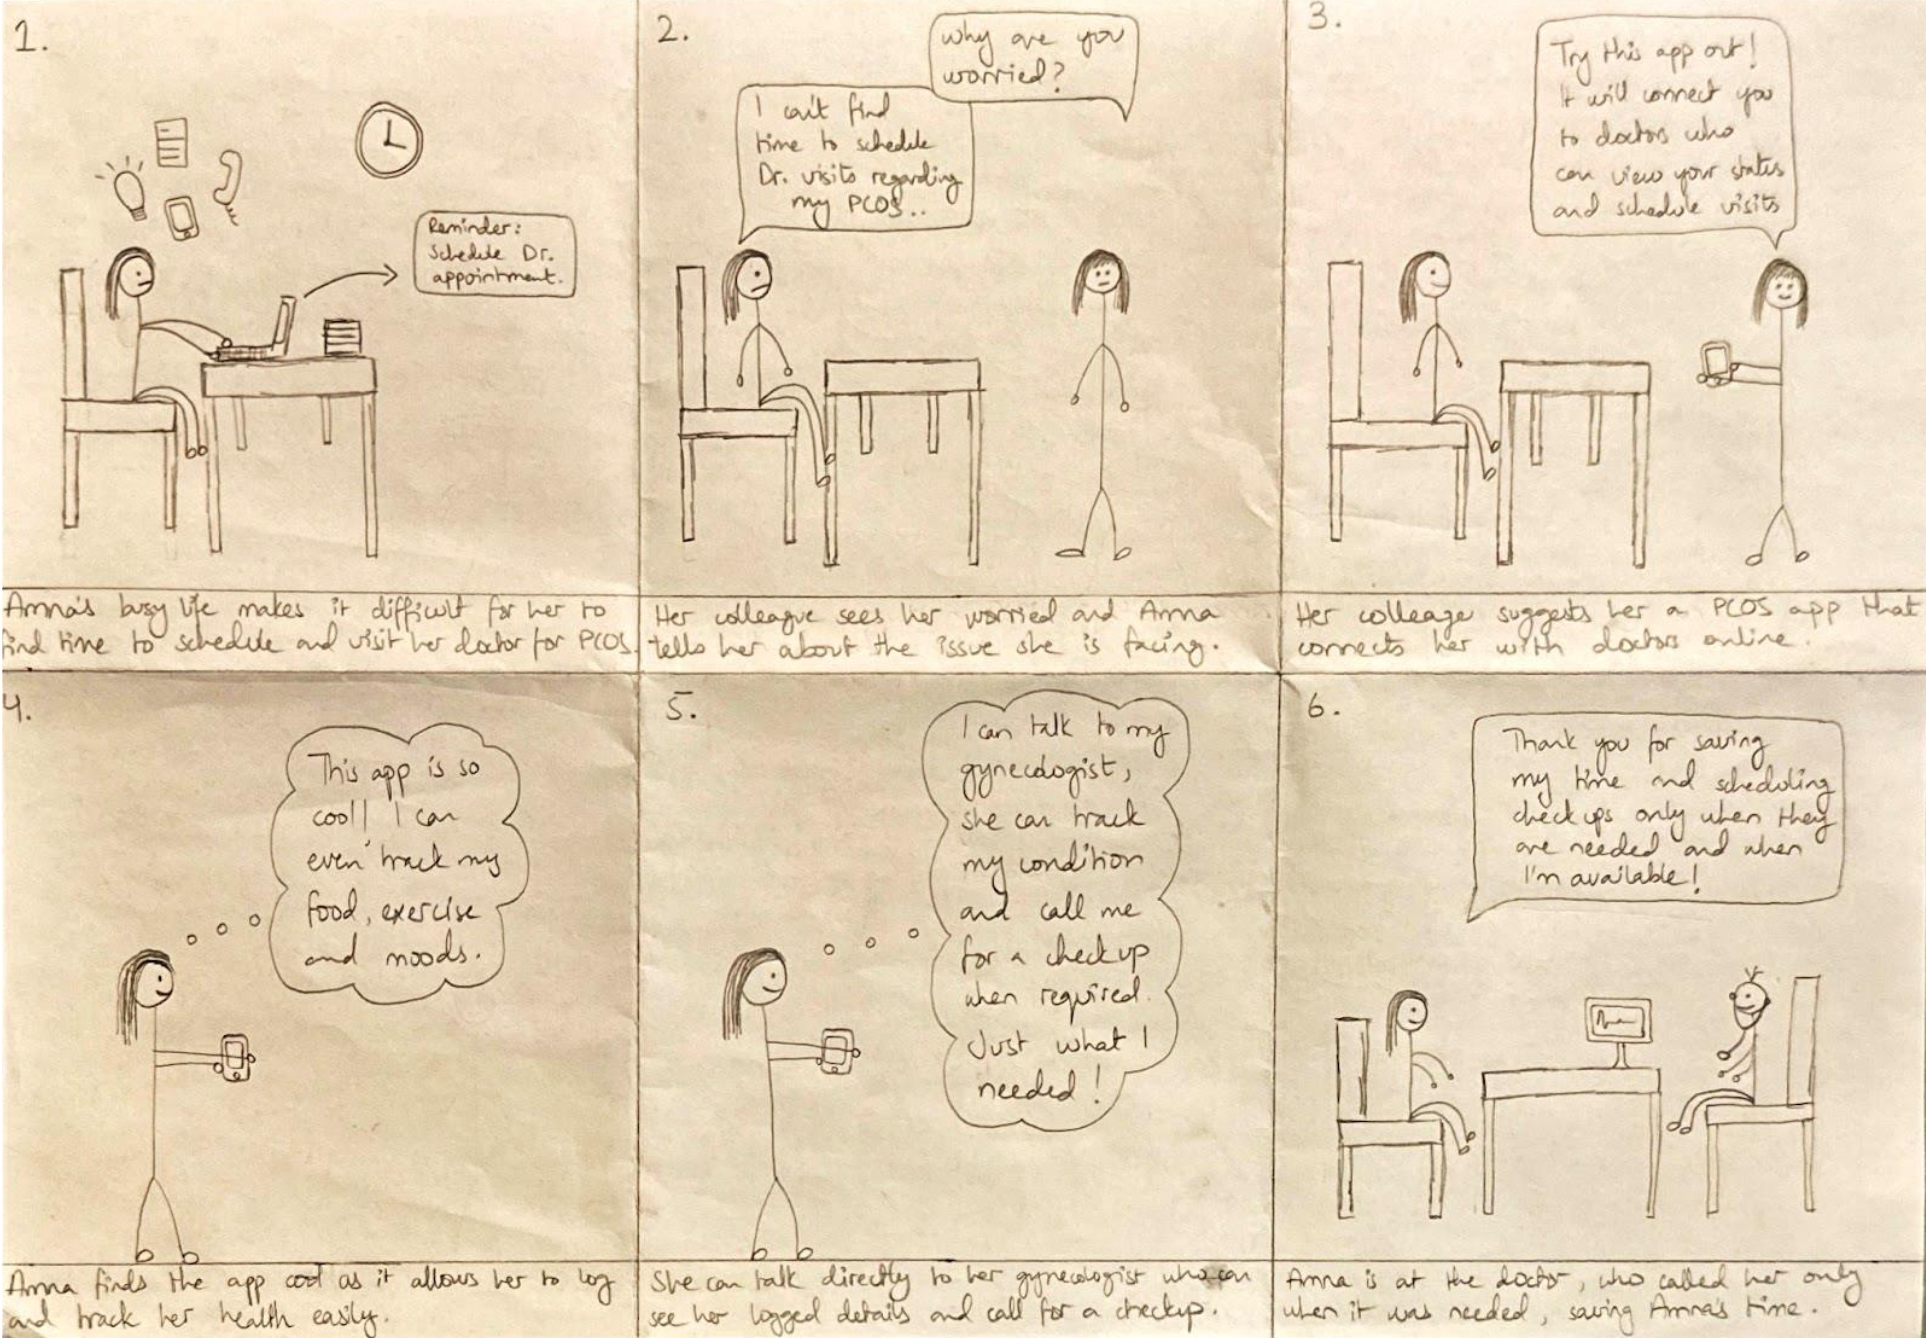 1.
Reminder:
Schedule Dr.
appointment.
Amna's busy life makes it difficult for her to
find time to schedule and visit her doctor for PCOS.
2.
Why are you
worried?
I can't find
time to schedule
Dr. visits regarding
my PCOS..
Her colleague sees her worried and Amna
tells her about the issue she is facing.
3.
Try this app out!
It will connect you
to doctors who
can view your states
and schedule visits
Her colleage suggests her a PCOS app that
connects her with doctors online.
4.
This app is so
cool! I can
even track my
food, exercise
and moods.
Amna finds the app cool as it allows her to log
and track her health easily.
5.
I can talk to my
gynecologist,
she can track
my condition
and call me
for a checkup
when required.
Just what I
needed!
She can talk directly to her gynecologist who can
see her logged details and call for a checkup.
6.
Thank you for saving
my time and scheduling
check ups only when they
are needed and when
I'm available!
Amna is at the doctor, who called her only
when it was needed, saving Amna's time.